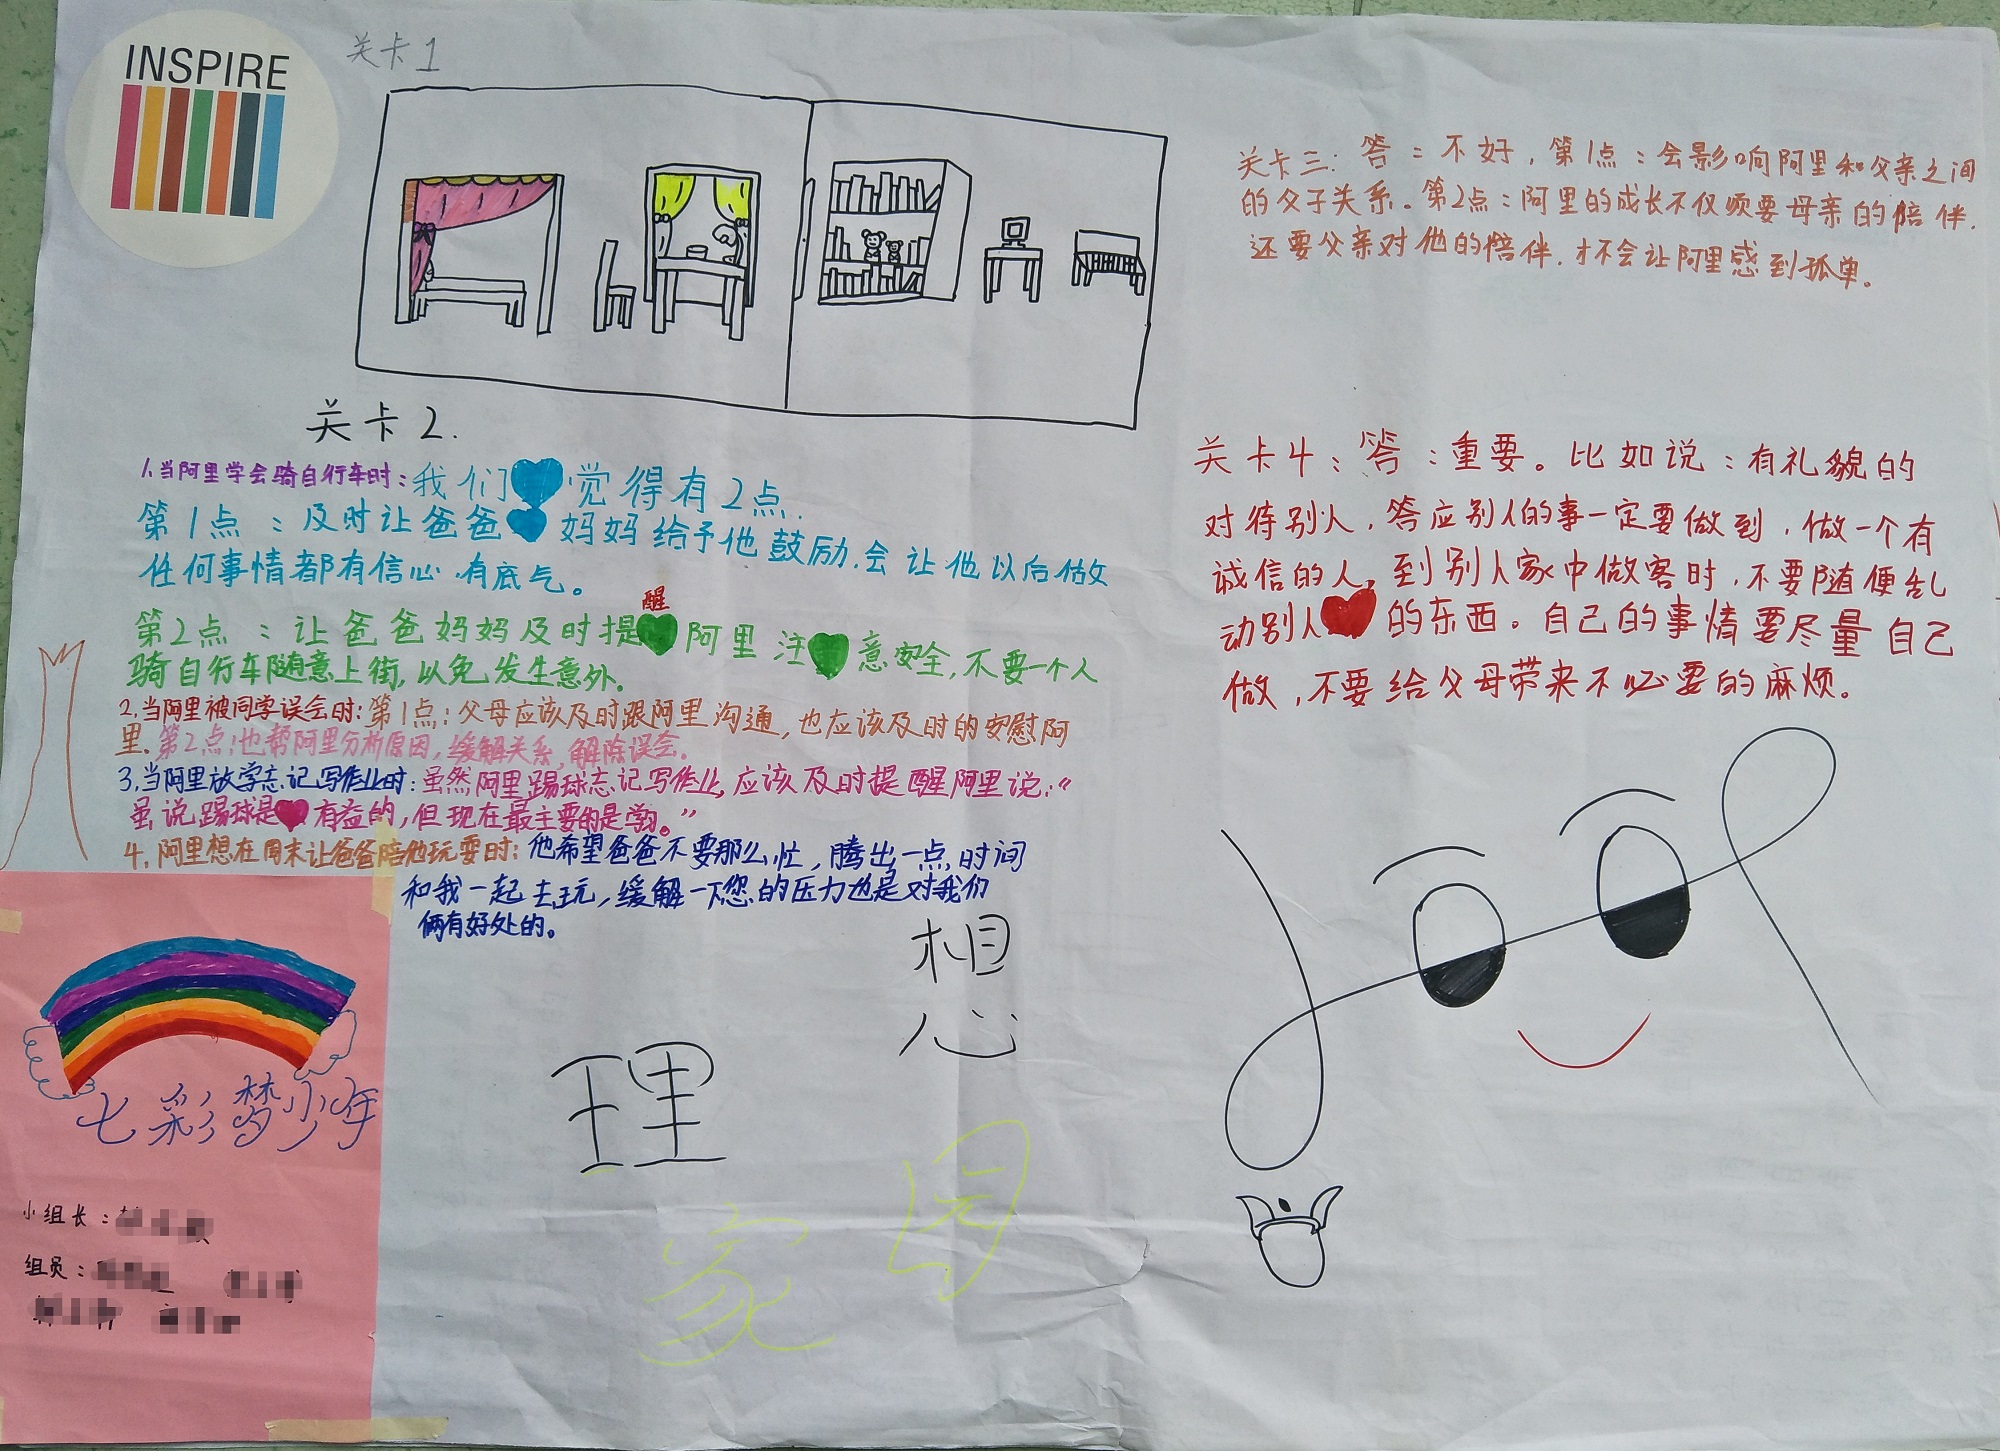 INSPIRE
关卡1
关卡2.
1.当阿里学会骑自行车时:我们觉得有2点.
第1点:及时让爸爸妈妈给予他鼓励.会让他以后做
任何事情都有信心.有底气。
第2点:让爸爸妈妈及时提醒阿里注意安全,不要一个人
骑自行车随意上街,以免发生意外.
2.当阿里被同学误会时:第1点:父母应该及时跟阿里沟通,也应该及时的安慰阿
里.第2点:也帮阿里分析原因,缓解关系,解除误会。
3.当阿里放学忘记写作业时:虽然阿里踢球忘记写作业,应该及时提醒阿里说:“
虽说踢球是有益的,但现在最主要的是学习。”
4.阿里想在周末让爸爸陪他玩耍时:他希望爸爸不要那么忙,腾出一点时间
和我一起去玩,缓解一下您的压力也是对我们
俩有好处的。
关卡三:答:不好,第1点:会影响阿里和父亲之间
的父子关系。第2点:阿里的成长不仅须要母亲的陪伴.
还要父亲对他的陪伴.才不会让阿里感到孤单。
关卡4:答:重要。比如说:有礼貌的
对待别人,答应别人的事一定要做到,做一个有
诚信的人。到别人家中做客时,不要随便乱
动别人的东西。自己的事情要尽量自己
做,不要给父母带来不必要的麻烦。
理想家园
七彩梦少年
小组长:
组员: